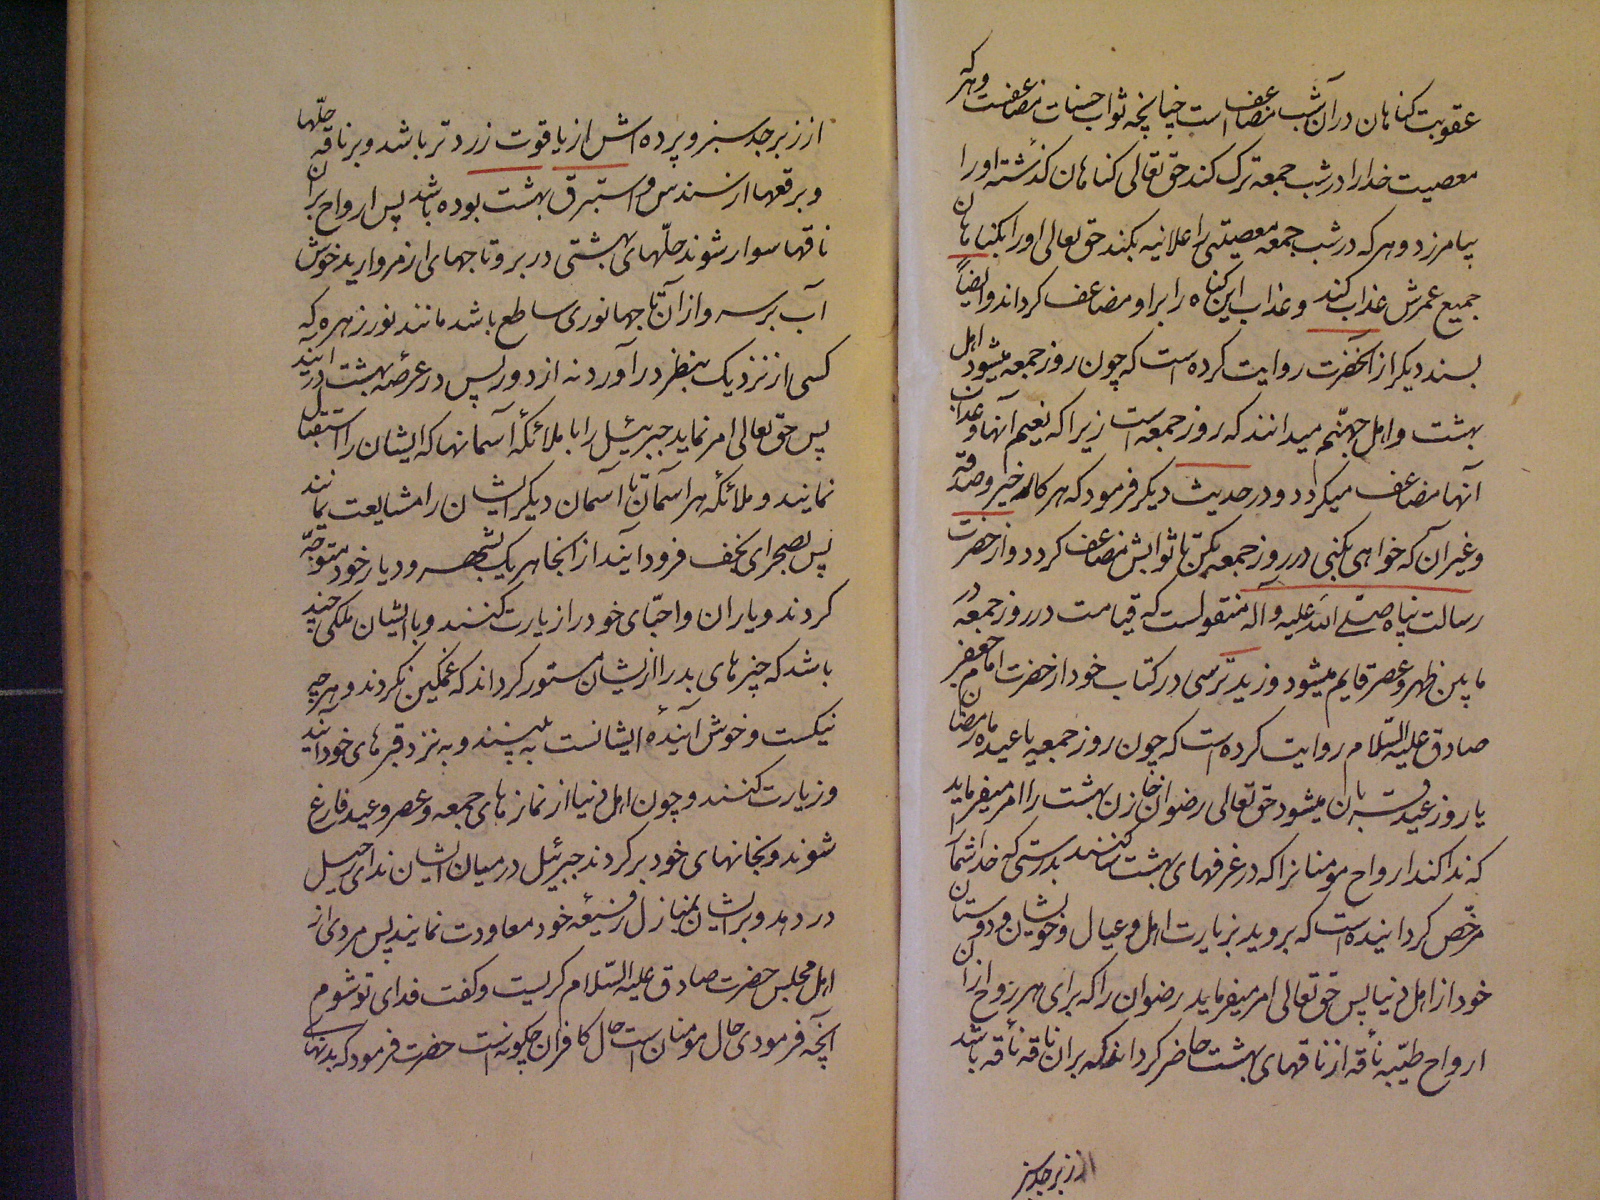 عقوبت کناهان در آن شب مضاعف است چنانچه ثواب حسنات مضاعفست و هر که
معصیت خدا را در شب جمعه ترک کند حق تعالی کناهان کذشته او را
بیامرزد و هر که در شب جمعه معصیتی را علانیه بکند حق تعالی او را بکناهان
جمیع عمرش عذاب کند و عذاب این کناه را بر او مضاعف کرداند و ایضاً
بسند دیکر از آنحضرت روایت کرده است که چون روز جمعه میشود اهل
بهشت و اهل جهنّم میدانند که روز جمعه است زیرا که نعیم آنها و عذاب
آنها مضاعف میکردد و در حدیث دیکر فرمود که هر کاه خیر و صدقه
و غیر آن که خواهی بکنی در روز جمعه بکن تا ثوابش مضاعف کردد و از حضرت
رسالت پناه صلّے الله علیه و آله منقولست که قیامت در روز جمعه در
مابین ظهر و عصر قایم میشود و زید نرسی در کتاب خود از حضرت امام جعفر
صادق علیه السّلام روایت کرده است که چون روز جمعه یا عید ماه رمضان
یا روز عید قربان میشود حق تعالی رضوان خازن بهشت را امر میفرماید
که ندا کند ارواح مومنانرا که در غرفهای بهشت ساکنند بدرستی که خدا شما را
مرخّص کردانیده است که بروید بزیارت اهل و عیال و خویشان و دوستان
خود از اهل دنیا پس حق تعالی امر میفرماید رضوان را که برای هر روح از آن
ارواح طیّبه ناقه از ناقهای بهشت حاضر کرداند که بر آن ناقه ناقه باشد
از زبرجد سبز
از زبرجد سبز و پرده اش از یاقوت زرد تر باشد و بر ناقه حلّها
و برقعها از سندس و استبرق بهشت بوده باشد پس ارواح بر آن
ناقها سوار شوند حلّهای بهشتی در بر و تاجهای از مروارید خوش
آب بر سر و از آن تاجها نوری ساطع باشد مانند نور زهره که
کسی از نزدیک بنظر در آورد نه از دور پس در عرصه بهشت در آیند
پس حق تعالی امر نماید جبرئیل را با ملائکه آسمانها که ایشان را استقبال
نمایند و ملائکه هر آسمان تا آسمان دیکر ایشان را مشایعت نمایند
پس بصحرای نجف فرود آیند از آنجا هر یک بشهر و دیار خود متوجّه
کردند و یاران و احبّای خود را زیارت کنند و با ایشان ملکی چند
باشد که چیزهای بد را از ایشان مستور کرداند که غمکین نکردند و هر چه
نیکست و خوش آینده ایشانست به بینند و به نزد قبرهای خود آیند
و زیارت کنند و چون اهل دنیا از نمازهای جمعه و عصر و عید فارغ
شوند و بخانهای خود بر کردند جبرئیل در میان ایشان ندای رحیل
در دهد و برایشان بمنازل رفیعه خود معاودت نمایند پس مردی از
اهل مجلس حضرت صادق علیه السّلام کریست و کفت فدای تو شوم
آنچه فرمودی حال مومنان است حال کافران چکونه است حضرت فرمود که بدنهای